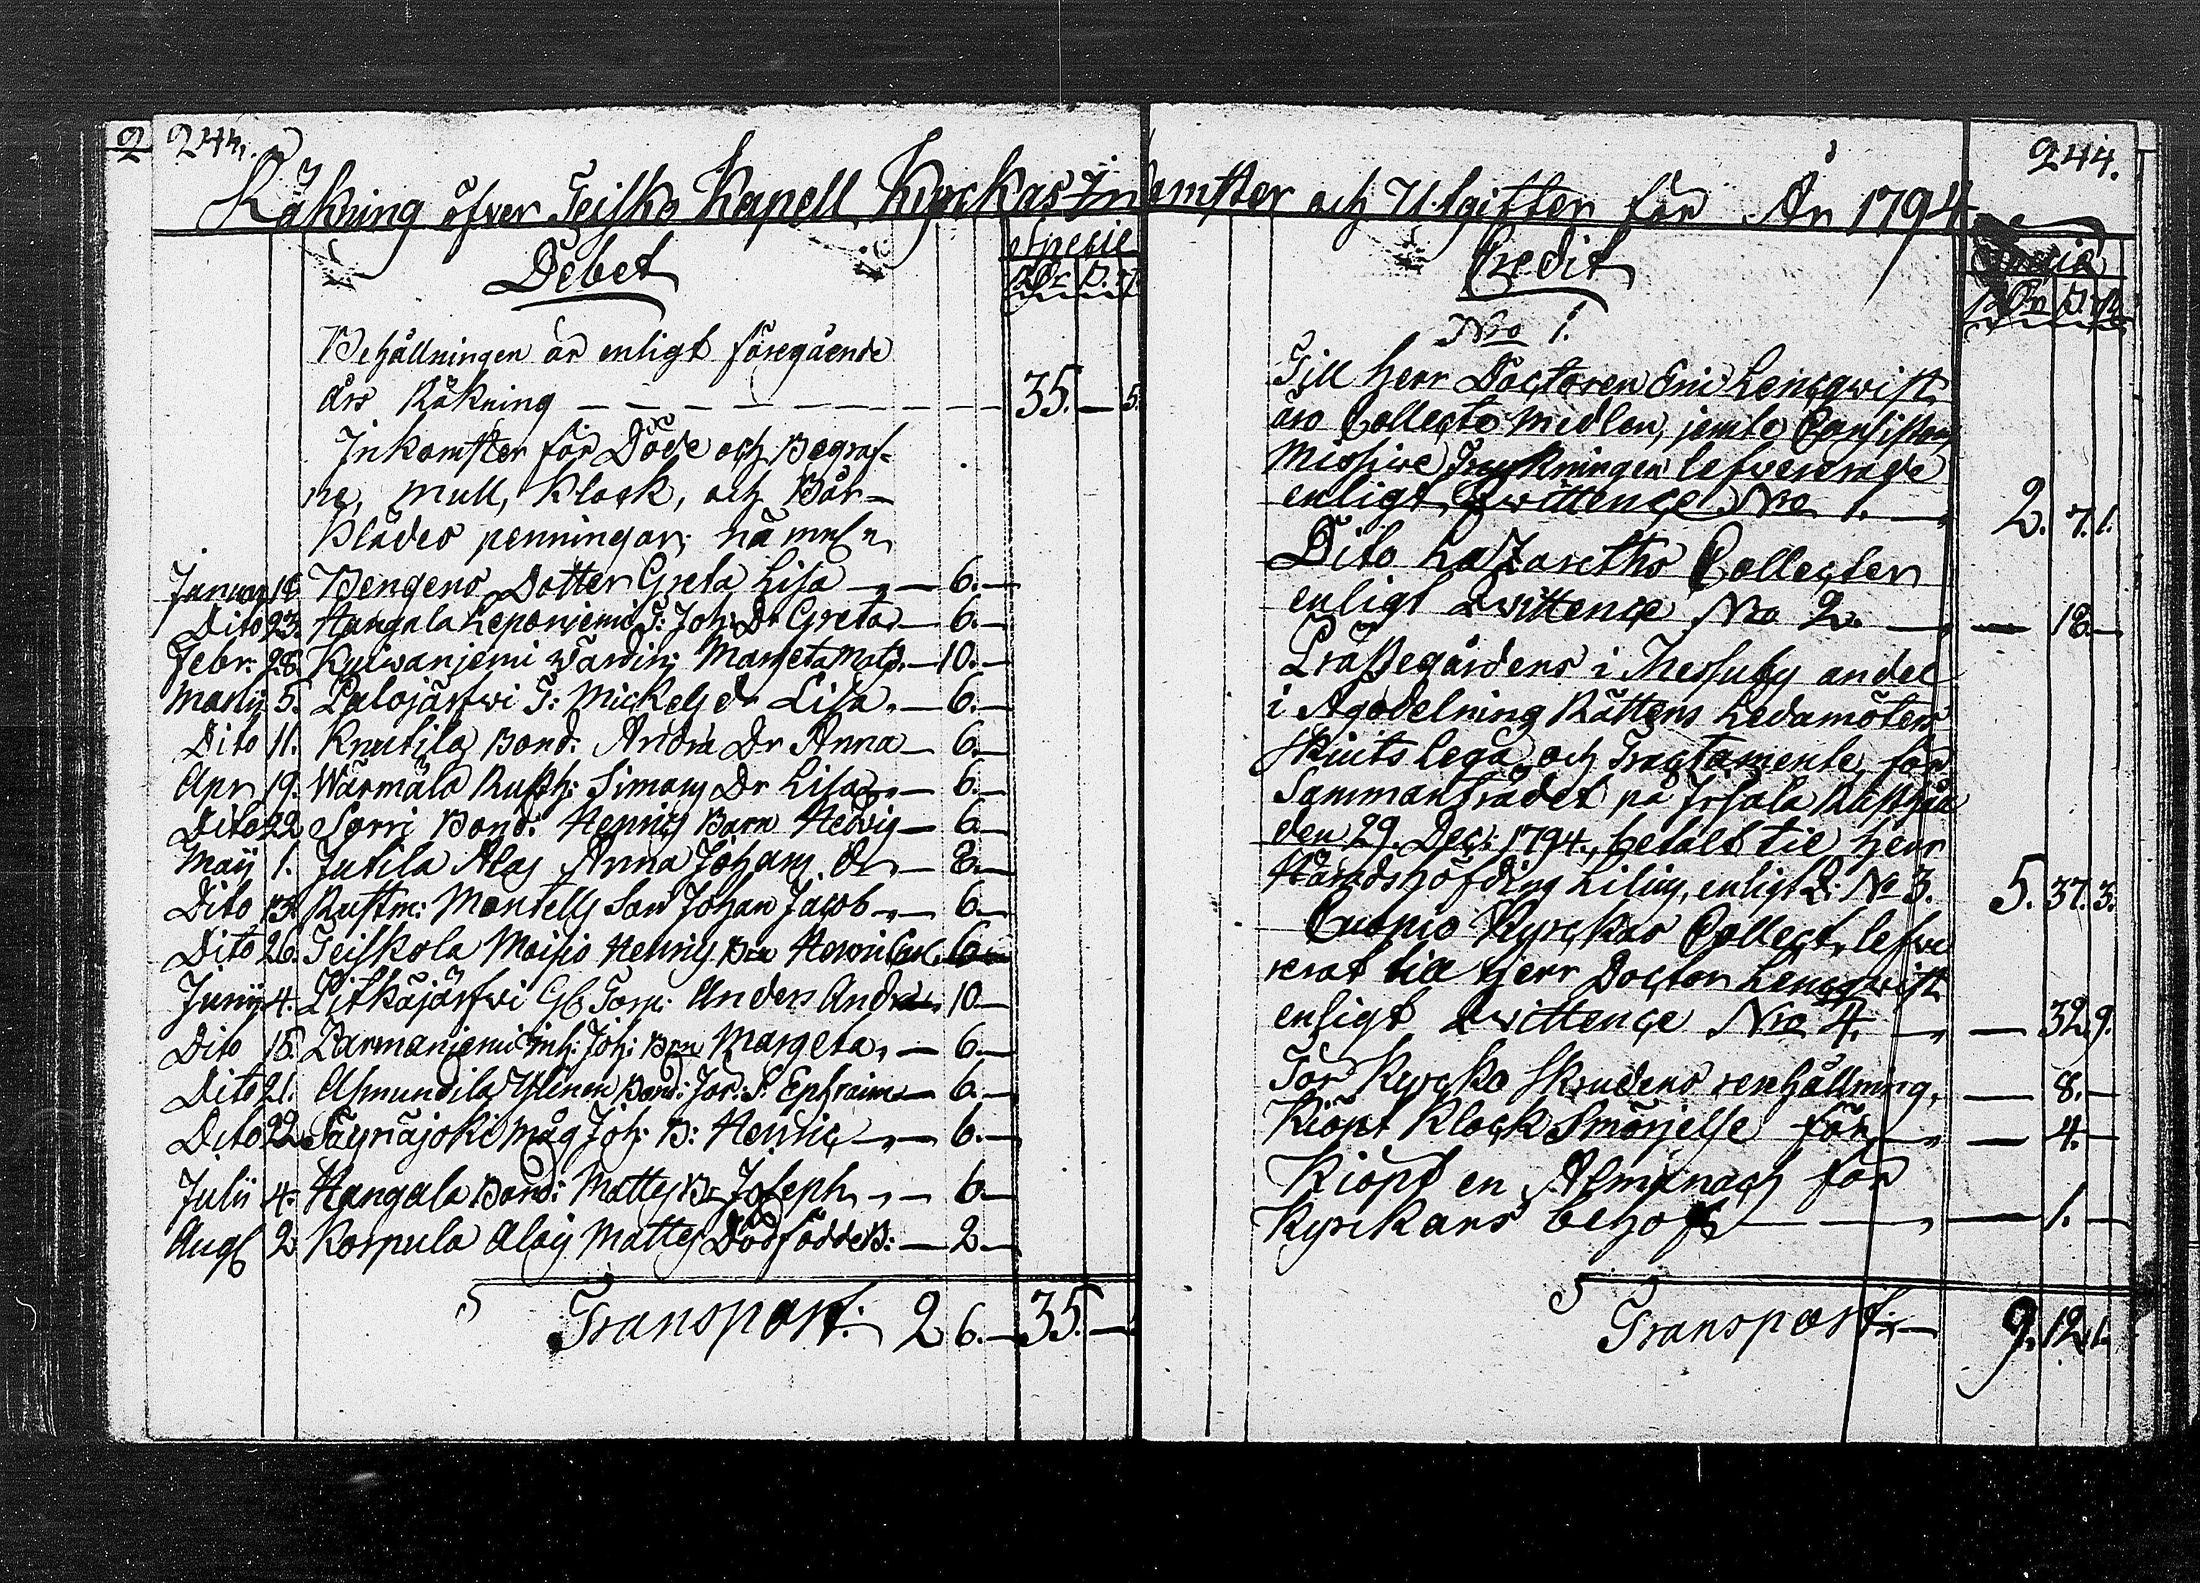 2 244.
244.
Räkning öfver Teisko Kapell Kyrckas Inkomster och Utgifter för År 1794
Debet
Specie
RDr S. r.
Behållningen är enligt föregående
års Räkning — — — — — — — 35. — 5.
Inkomster för Döde och Begraf-
ne, Mull, Klock, och Bår-
Klädes penningar, näml:n
Januarii 16. Bengens Dotter Greta Lisa „ — 6. —
Dito 23. Hangala Leponiemi T: Joh: Dr Greta — 6. —
Febr: 28. Kuiwanjemi Margeta Matsd. — 10. —
Martij 5. Palojärfwi T: Mickels dr Lisa. — 6. —
Dito 11. Knutila Bond: Andra Dr Anna — 6. —
Apr 19. Wärmälä Rusth: Simons Dr Lisa „ — 6. —
Dito 22 Sorri Bond: Henrics Barn Hedvig — 6. —
Maij 1. Jutila Anna Johans Dr „ — 8. —
Dito 13. Rustm: Montells Son Johan Jacob „ — 6. —
Dito 26. Teiskola Moisio Henrics Brn — 6 —
Junij 4. Pitkäjärfwi Torp: Anders Andra — 10. —
Dito 15. Parmaniemi Inh: Joh: Brn Margeta „ — 6. —
Dito 21. Asmundila Ylinen Bond: S. Ephraim — 6. —
Dito 22. Täyriäjoki Måg Joh: B: Henric „ — 6. —
Julii 4. Hangala Bond: Matts Br Joseph „ — 6 —
Aug 2 Korpula Matts Dödfödde B: — 2 —
Transport: 26. — 35. —
Credit
Specie
RDr S. r.
Nro 1.
Till Herr Doctoren Eric Lencqwist
års Collecte Medlen, jemte Consistorii
Missive Tryckningen lefvererade
enligt Qwittence Nro 1. — 2. 7. 1.
Dito Lazareths Collecten
enligt Qwittence Nro 2. — „ — 18. —
Prästegårdens i Messuby andel
i Ägodelning Rättens Ledamöters
Skiuts lega och Tractamente, för
Sammanträdet på Irjala Rusthåll
den 29. Dec: 1794., betalt til Herr
Häradshöfding Lilius, enligt Q: No 3. 5. 37. 3.
Cuopio Kyrckas Collect, lefve
rerat till Herr Doctor Lencqwist
enligt Qwittence Nro 4. — „ — 32. 9.
För Kyrcko Skrudens renhållning, — 8. —
Kiöpt Klock Smörjelse för — „ — 4. —
Kiöpt en Almanach för
Kyrckans behof — — „ — 1. —
Transport. — 9. 12. 1.